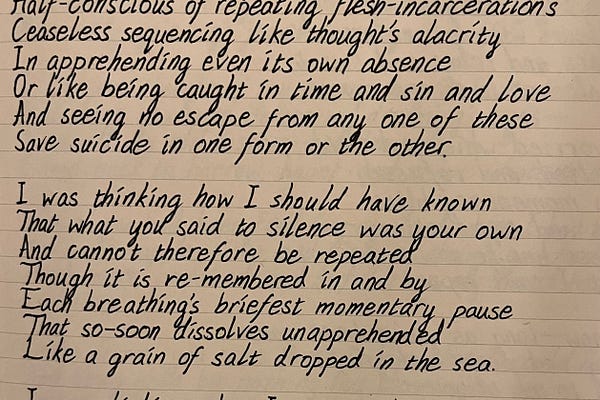 Half-conscious of repeating flesh-incarcerations
Ceaseless sequencing like thought's alacrity
In apprehending even its own absence
Or like being caught in time and sin and love
And seeing no escape from any one of these
Save suicide in one form or the other.
I was thinking how I should have known
That what you said to silence was your own
And cannot therefore be repeated
Though it is re-membered in and by
Each breathing's briefest momentary pause
That so-soon dissolves unapprehended
Like a grain of salt dropped in the sea.